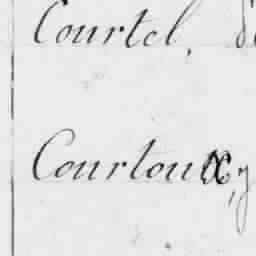 Courtel,
Courtoux,